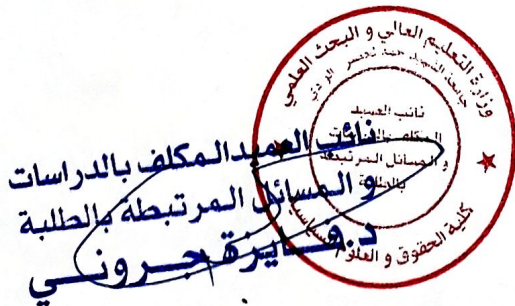 وزارة التعليم العالي و البحث العلمي
جامعة الشهيد حمة لخضر الوادي
نائب العميد
المكلف بالدراسات
و المسائل المرتبطة
بالطلبة
كلية الحقوق و العلوم السياسية
نائب العميد المكلف بالدراسات
و المسائل المرتبطة بالطلبة
د.فايزة جروني